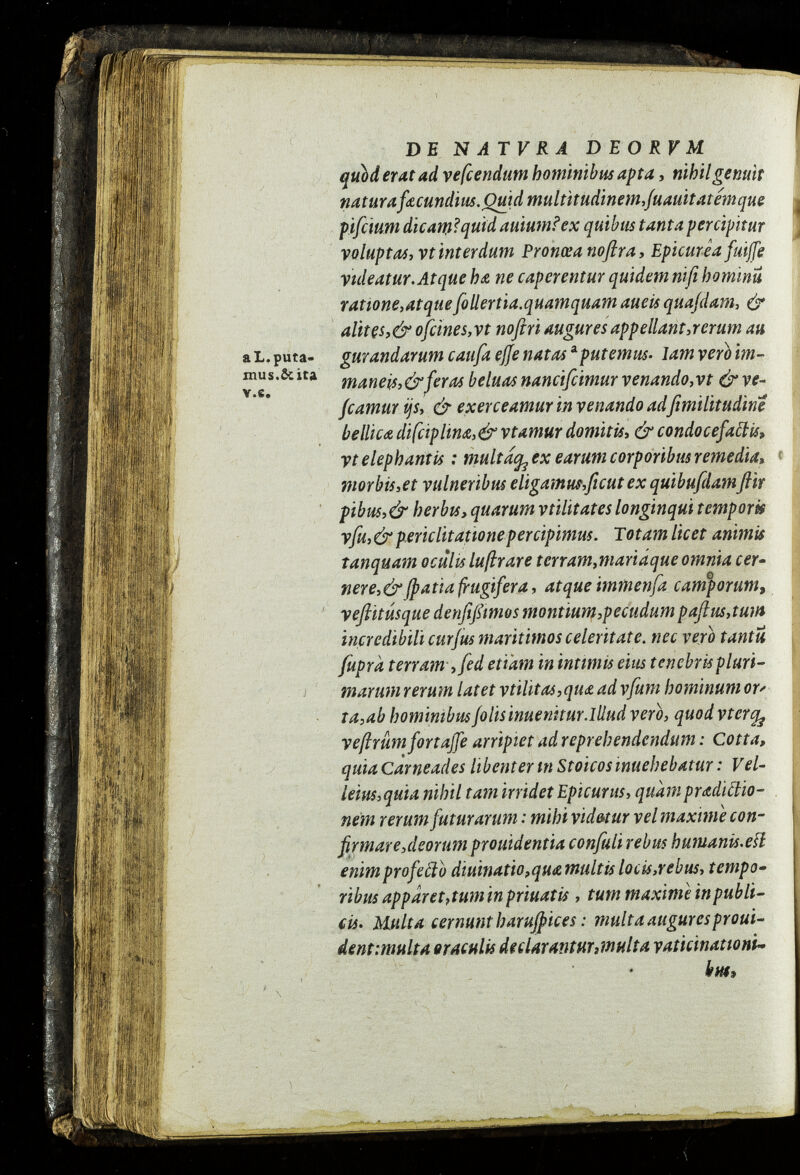 DE NATVRA DEORVM
quòd erat ad veſcendum hominibus apta, nihil genuit
natura fæcundius. Quid multitudinem, ſuauitatémque
piſcium dicam? quid auium? ex quibus tanta percipitur
voluptas, vt interdum Pronœa noſtra, Epicuréa fuiſſe
videatur. Atque hæ ne caperentur quidem niſi hominũ
ratione, atque ſollertia. quamquam aueis quaſdam, &
alites, & oſcines, vt noſtri augures appellant, rerum au
gurandarum cauſa eſſe natas ª putemus. Iam verò im-
maneis, & feras beluas nanciſcimur venando, vt & ve-
ſcamur ijs, & exerceamur in venando ad ſimilitudinẽ
bellicæ diſciplinæ, & vtamur domitis, & condocefactis,
vt elephantis : multáq; ex earum corporibus remedia,
morbis, et vulneribus eligamus, ſicut ex quibuſdam ſtir
pibus, & herbis, quarum vtilitates longinqui temporis
vſu, & periclitatione percipimus. Totam licet animis
tanquam oculis luſtrare terram, mariáque omnia cer-
nere, & ſpatia frugifera, atque immenſa camporum,
veſtitúsque denſiſsimos montium, pecudum paſtus, tum
incredibili curſus maritimos celeritate. nec verò tantũ
ſuprà terram, ſed etiam in intimis eius tenebris pluri-
marum rerum latet vtilitas, quæ ad vſum hominum or-
ta, ab hominibus ſolis inuenitur. Illud verò, quod vterq;
veſtrûm fortaſſe arripiet ad reprehendendum : Cotta,
quia Carneades libenter in Stoicos inuehebatur : Vel-
leius, quia nihil tam irridet Epicurus, quàm prædictio-
nem rerum futurarum : mihi videtur vel maximè con-
firmare, deorum prouidentia conſuli rebus humanis. eſt
enim profectò diuinatio, quæ multis locis, rebus, tempo-
ribus apparet, tum in priuatis, tum maximè in publi-
cis. Multa cernunt haruſpices : multa augures proui-
dent: multa oraculis declarantur, multa vaticinationi-
bus,
a L. puta-
mus. & ita
v.c.